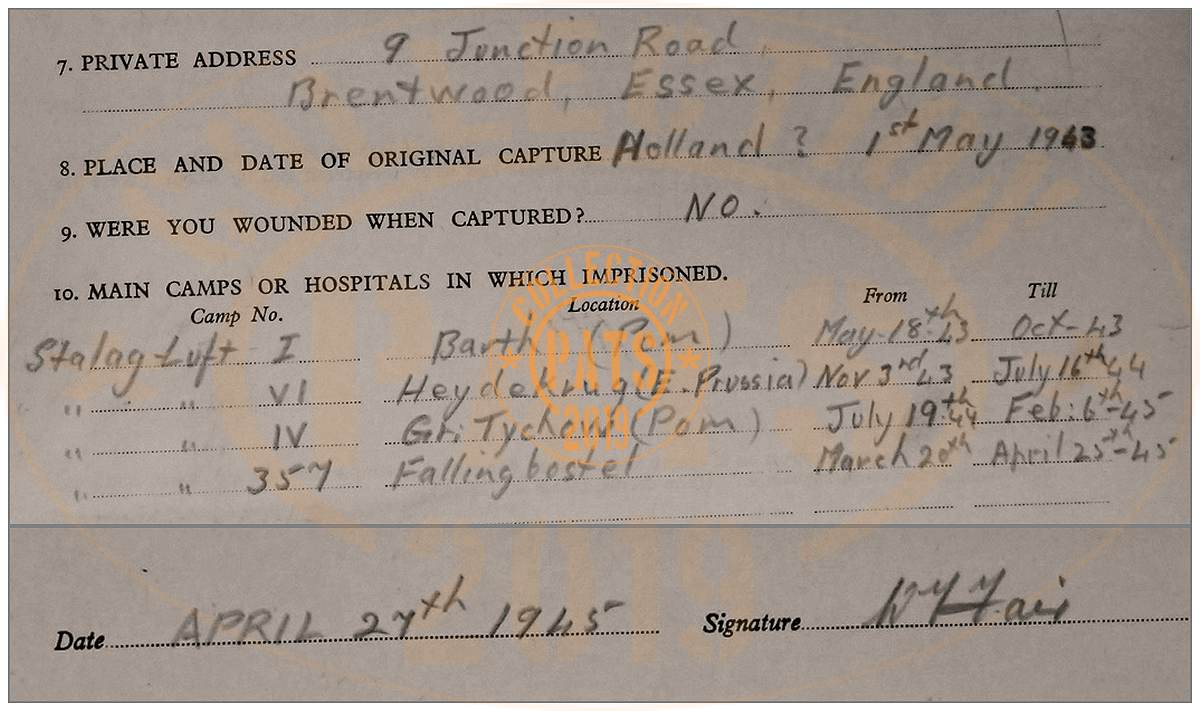 7. PRIVATE ADDRESS 9 Junction Road
Brentwood, Essex, England.
8. PLACE AND DATE OF ORIGINAL CAPTURE Holland ? 1st May 1943.
9. WERE YOU WOUNDED WHEN CAPTURED? NO.
10. MAIN CAMPS OR HOSPITALS IN WHICH IMPRISONED.
Camp No. Location From Till
Stalag Luft I Barth (Pom) May-18th-43 Oct-43
" " VI Heydekrug (E. Prussia) Nov 3rd 43 July 16th 44
" " IV Gr. Tychow (Pom) July 19th-44 Feb: 6th-45
" " 357 Fallingbostel March 20th April 25th-45
COLLECTION
PATS
2019
Date APRIL 27th 1945 Signature